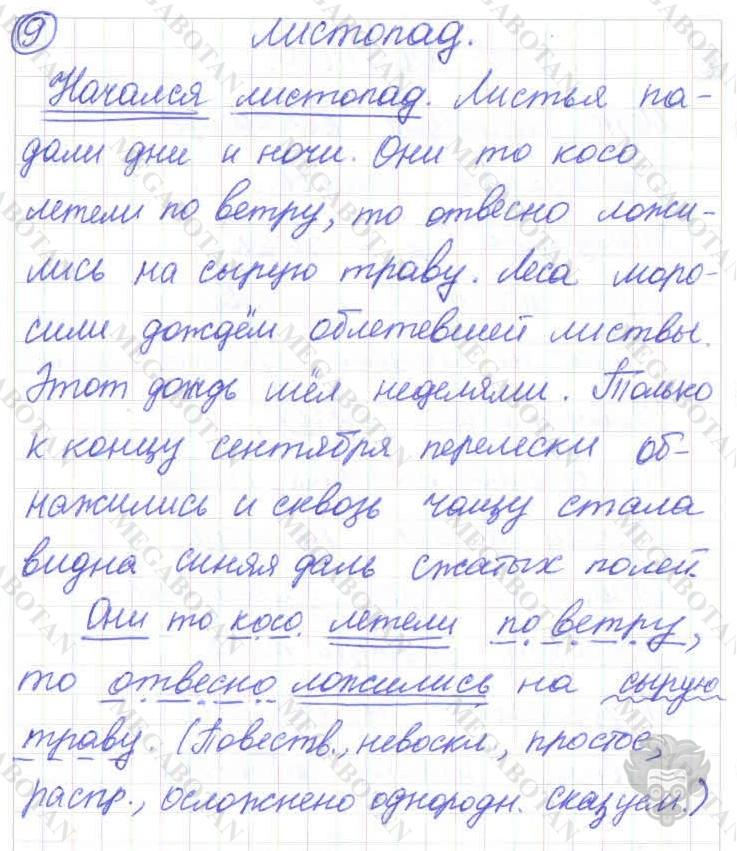 9 Листопад.
Начался листопад. Листья па-
дали дни и ночи. Они то косо
летели по ветру, то отвесно ложи-
лись на сырую траву. Леса моро-
сили дождём облетевшей листвы.
Этот дождь шёл неделями. Только
к концу сентября перелески об-
нажились и сквозь чащу стала
видна синяя даль сжатых полей.
Они то косо летели по ветру,
то отвесно ложились на сырую
траву. (Повеств., невоскл., простое,
распр., осложнено однородн. сказуем.)
MEGABOTAN